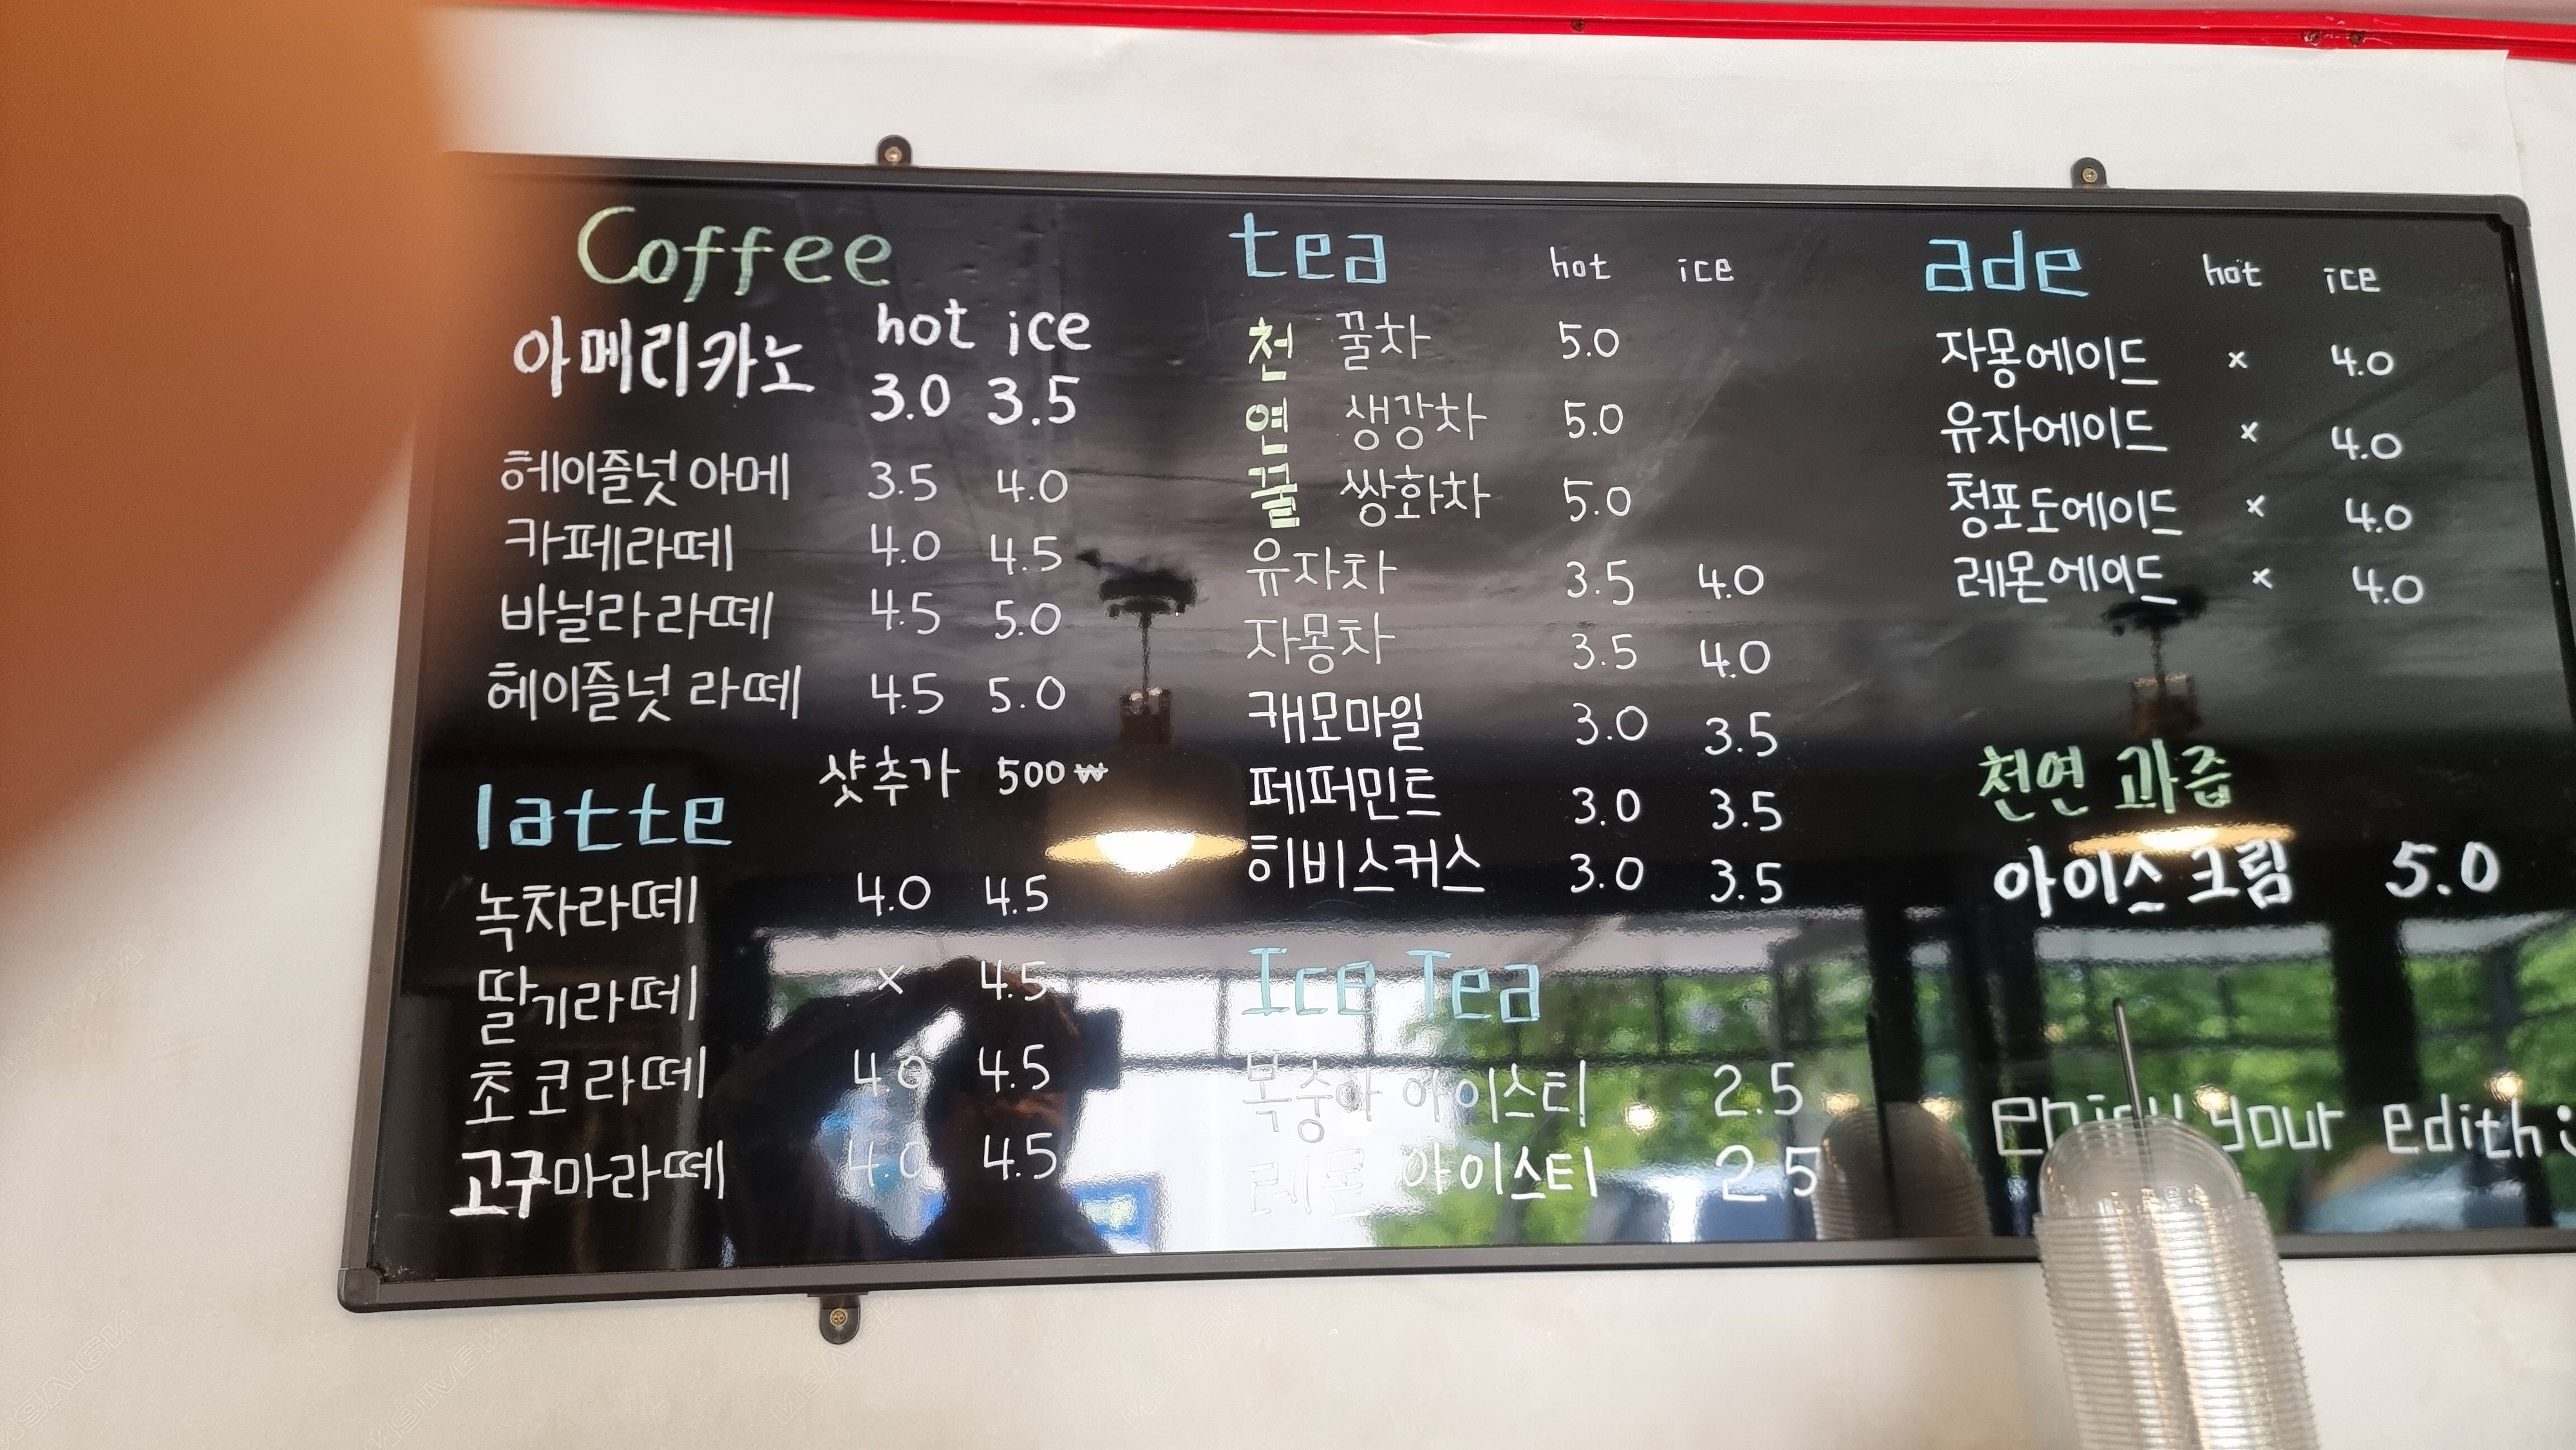 Coffee
hot ice
아메리카노 3.0 3.5
헤이즐넛 아메 3.5 4.0
카페라떼 4.0 4.5
바닐라 라떼 4.5 5.0
헤이즐넛 라떼 4.5 5.0
샷추가 500₩
latte
녹차라떼 4.0 4.5
딸기라떼 x 4.5
초코라떼 4.0 4.5
고구마라떼 4.0 4.5
tea hot ice
천연꿀
꿀차 5.0
생강차 5.0
쌍화차 5.0
유자차 3.5 4.0
자몽차 3.5 4.0
캐모마일 3.0 3.5
페퍼민트 3.0 3.5
히비스커스 3.0 3.5
Ice Tea
복숭아 아이스티 2.5
레몬 아이스티 2.5
ade hot ice
자몽에이드 x 4.0
유자에이드 x 4.0
청포도에이드 x 4.0
레몬에이드 x 4.0
천연 과즙
아이스크림 5.0
enjoy your edith: